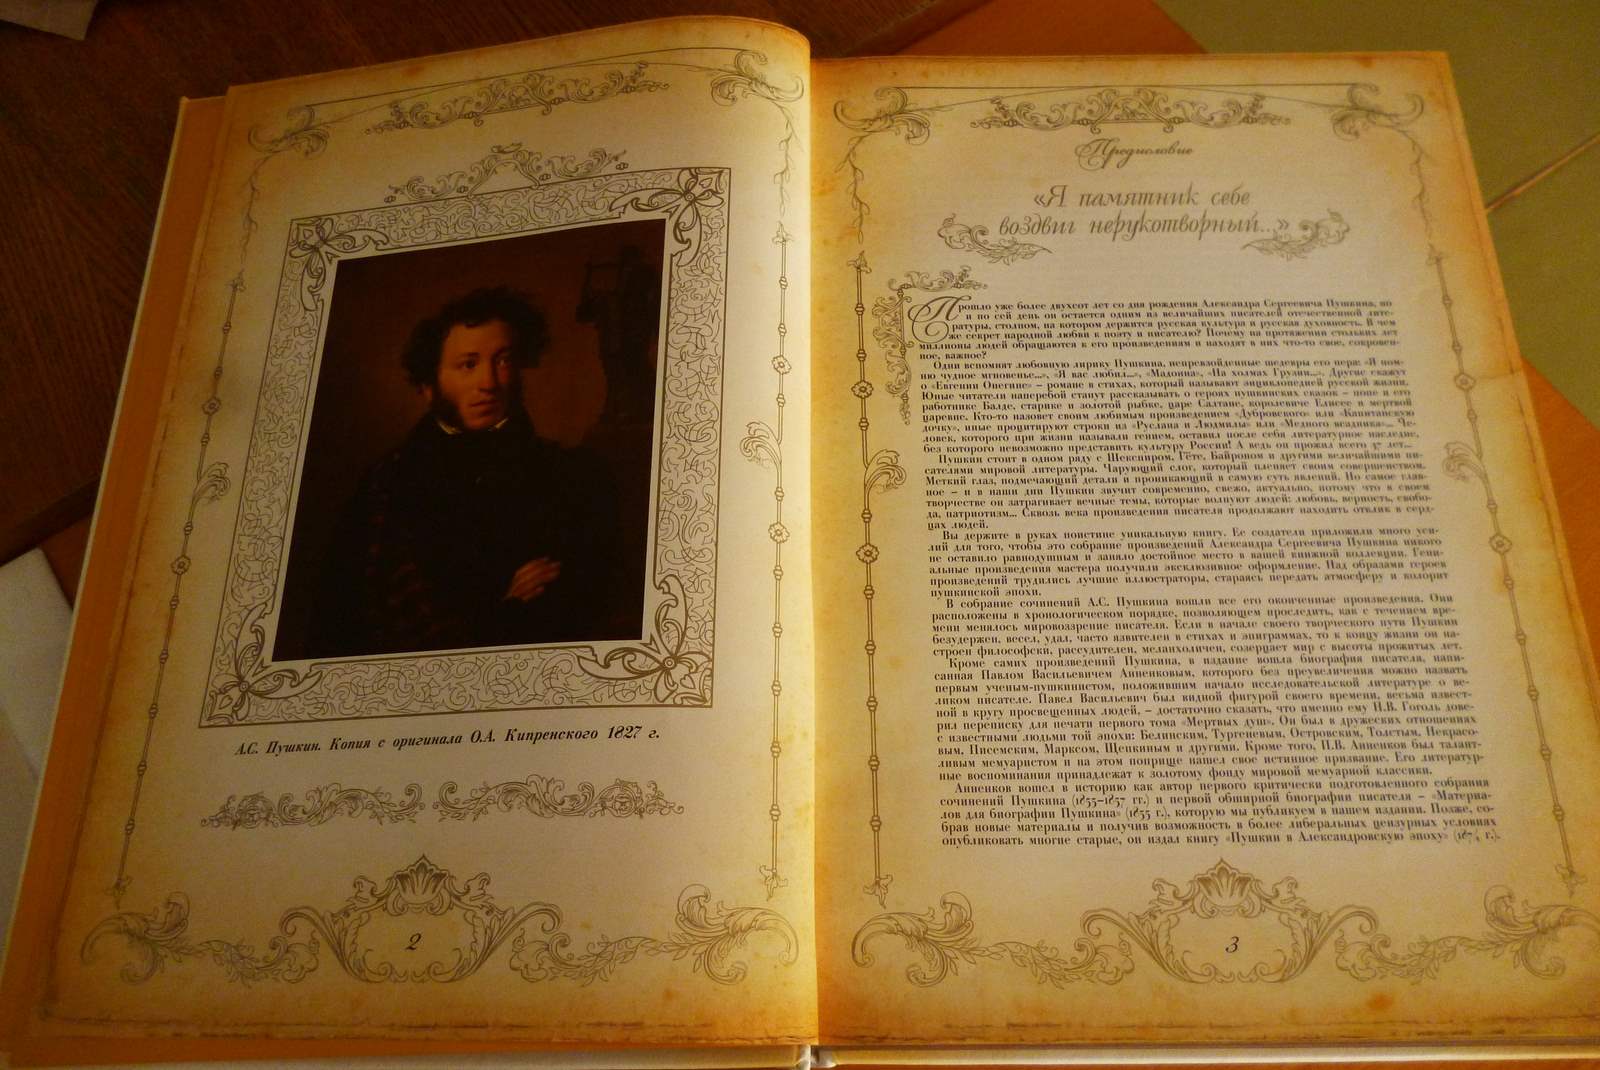 А.С. Пушкин. Копия с оригинала О.А. Кипренского 1827 г.
2
Предисловие
«Я памятник себе
воздвиг нерукотворный...»
Прошло уже более двухсот лет со дня рождения Александра Сергеевича Пушкина, но
и по сей день он остается одним из величайших писателей отечественной лите-
ратуры, столпом, на котором держится русская культура и русская духовность. В чем
же секрет народной любви к поэту и писателю? Почему на протяжении стольких лет
миллионы людей обращаются к его произведениям и находят в них что-то свое, сокровен-
ное, важное?
Одни вспомнят любовную лирику Пушкина, непревзойденные шедевры его пера: «Я пом-
ню чудное мгновенье...», «Я вас любил...», «Мадонна», «На холмах Грузии...». Другие скажут
о «Евгении Онегине» – романе в стихах, который называют энциклопедией русской жизни.
Юные читатели наперебой станут рассказывать о героях пушкинских сказок – попе и его
работнике Балде, старике и золотой рыбке, царе Салтане, королевиче Елисее и мертвой
царевне. Кто-то назовет своим любимым произведением «Дубровского» или «Капитанскую
дочку», иные процитируют строки из «Руслана и Людмилы» или «Медного всадника»... Че-
ловек, которого при жизни называли гением, оставил после себя литературное наследие,
без которого невозможно представить культуру России! А ведь он прожил всего 37 лет...
Пушкин стоит в одном ряду с Шекспиром, Гёте, Байроном и другими величайшими пи-
сателями мировой литературы. Чарующий слог, который пленяет своим совершенством.
Меткий глаз, подмечающий детали и проникающий в самую суть явлений. Но самое глав-
ное – и в наши дни Пушкин звучит современно, свежо, актуально, потому что в своем
творчестве он затрагивает вечные темы, которые волнуют людей: любовь, верность, свобо-
да, патриотизм... Сквозь века произведения писателя продолжают находить отклик в серд-
цах людей.
Вы держите в руках поистине уникальную книгу. Ее создатели приложили много уси-
лий для того, чтобы это собрание произведений Александра Сергеевича Пушкина никого
не оставило равнодушным и заняло достойное место в вашей книжной коллекции. Гени-
альные произведения мастера получили эксклюзивное оформление. Над образами героев
произведений трудились лучшие иллюстраторы, стараясь передать атмосферу и колорит
пушкинской эпохи.
В собрание сочинений А.С. Пушкина вошли все его оконченные произведения. Они
расположены в хронологическом порядке, позволяющем проследить, как с течением вре-
мени менялось мировоззрение писателя. Если в начале своего творческого пути Пушкин
безудержен, весел, удал, часто язвителен в стихах и эпиграммах, то к концу жизни он на-
строен философски, рассудителен, меланхоличен, созерцает мир с высоты прожитых лет.
Кроме самих произведений Пушкина, в издание вошла биография писателя, напи-
санная Павлом Васильевичем Анненковым, которого без преувеличения можно назвать
первым ученым-пушкинистом, положившим начало исследовательской литературе о ве-
ликом писателе. Павел Васильевич был видной фигурой своего времени, весьма извест-
ной в кругу просвещенных людей, – достаточно сказать, что именно ему Н.В. Гоголь дове-
рил переписку для печати первого тома «Мертвых душ». Он был в дружеских отношениях
с известными людьми той эпохи: Белинским, Тургеневым, Островским, Толстым, Некрасо-
вым, Писемским, Марксом, Щепкиным и другими. Кроме того, П.В. Анненков был талант-
ливым мемуаристом и на этом поприще нашел свое истинное призвание. Его литератур-
ные воспоминания принадлежат к золотому фонду мировой мемуарной классики.
Анненков вошел в историю как автор первого критически подготовленного собрания
сочинений Пушкина (1855–1857 гг.) и первой обширной биографии писателя – «Материа-
лов для биографии Пушкина» (1855 г.), которую мы публикуем в нашем издании. Позже, со-
брав новые материалы и получив возможность в более либеральных цензурных условиях
опубликовать многие старые, он издал книгу «Пушкин в Александровскую эпоху» (1874 г.).
3